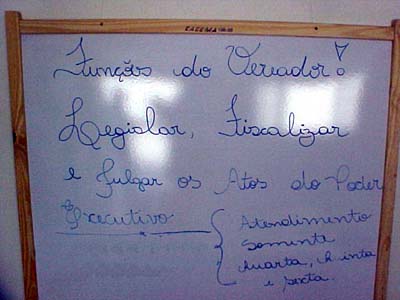 Função do Vereador!
Legislar, Fiscalizar
e Julgar os Atos do Poder
Executivo
Atendimento
somente
Quarta, Quinta
e sexta.